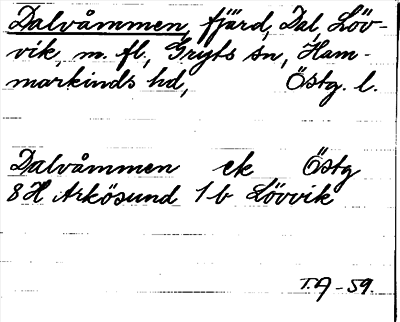 Dalvåmmen, fjärd, Dal, Löv-
vik, m. fl., Gryts sn, Ham-
markinds hd, Östg. l.
Dalvåmmen ek Östg
8H Arkösund 1b Lövvik
T.A-59.